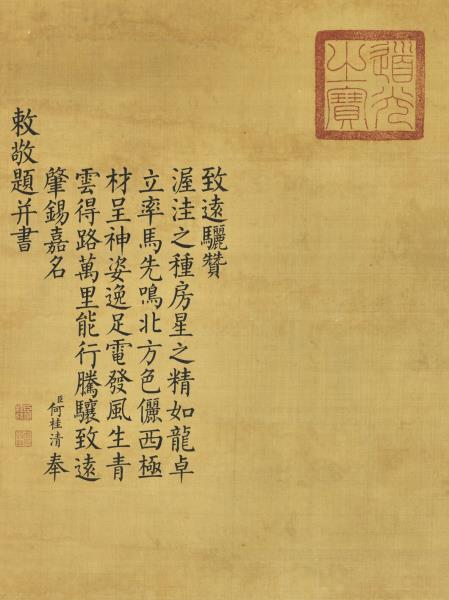 道光之寶
致遠驪贊
渥洼之種房星之精如龍卓
立率馬先鳴北方色儷西極
材呈神姿逸足電發風生青
雲得路萬里能行騰驤致遠
肇錫嘉名
臣何桂清奉
敕敬題并書